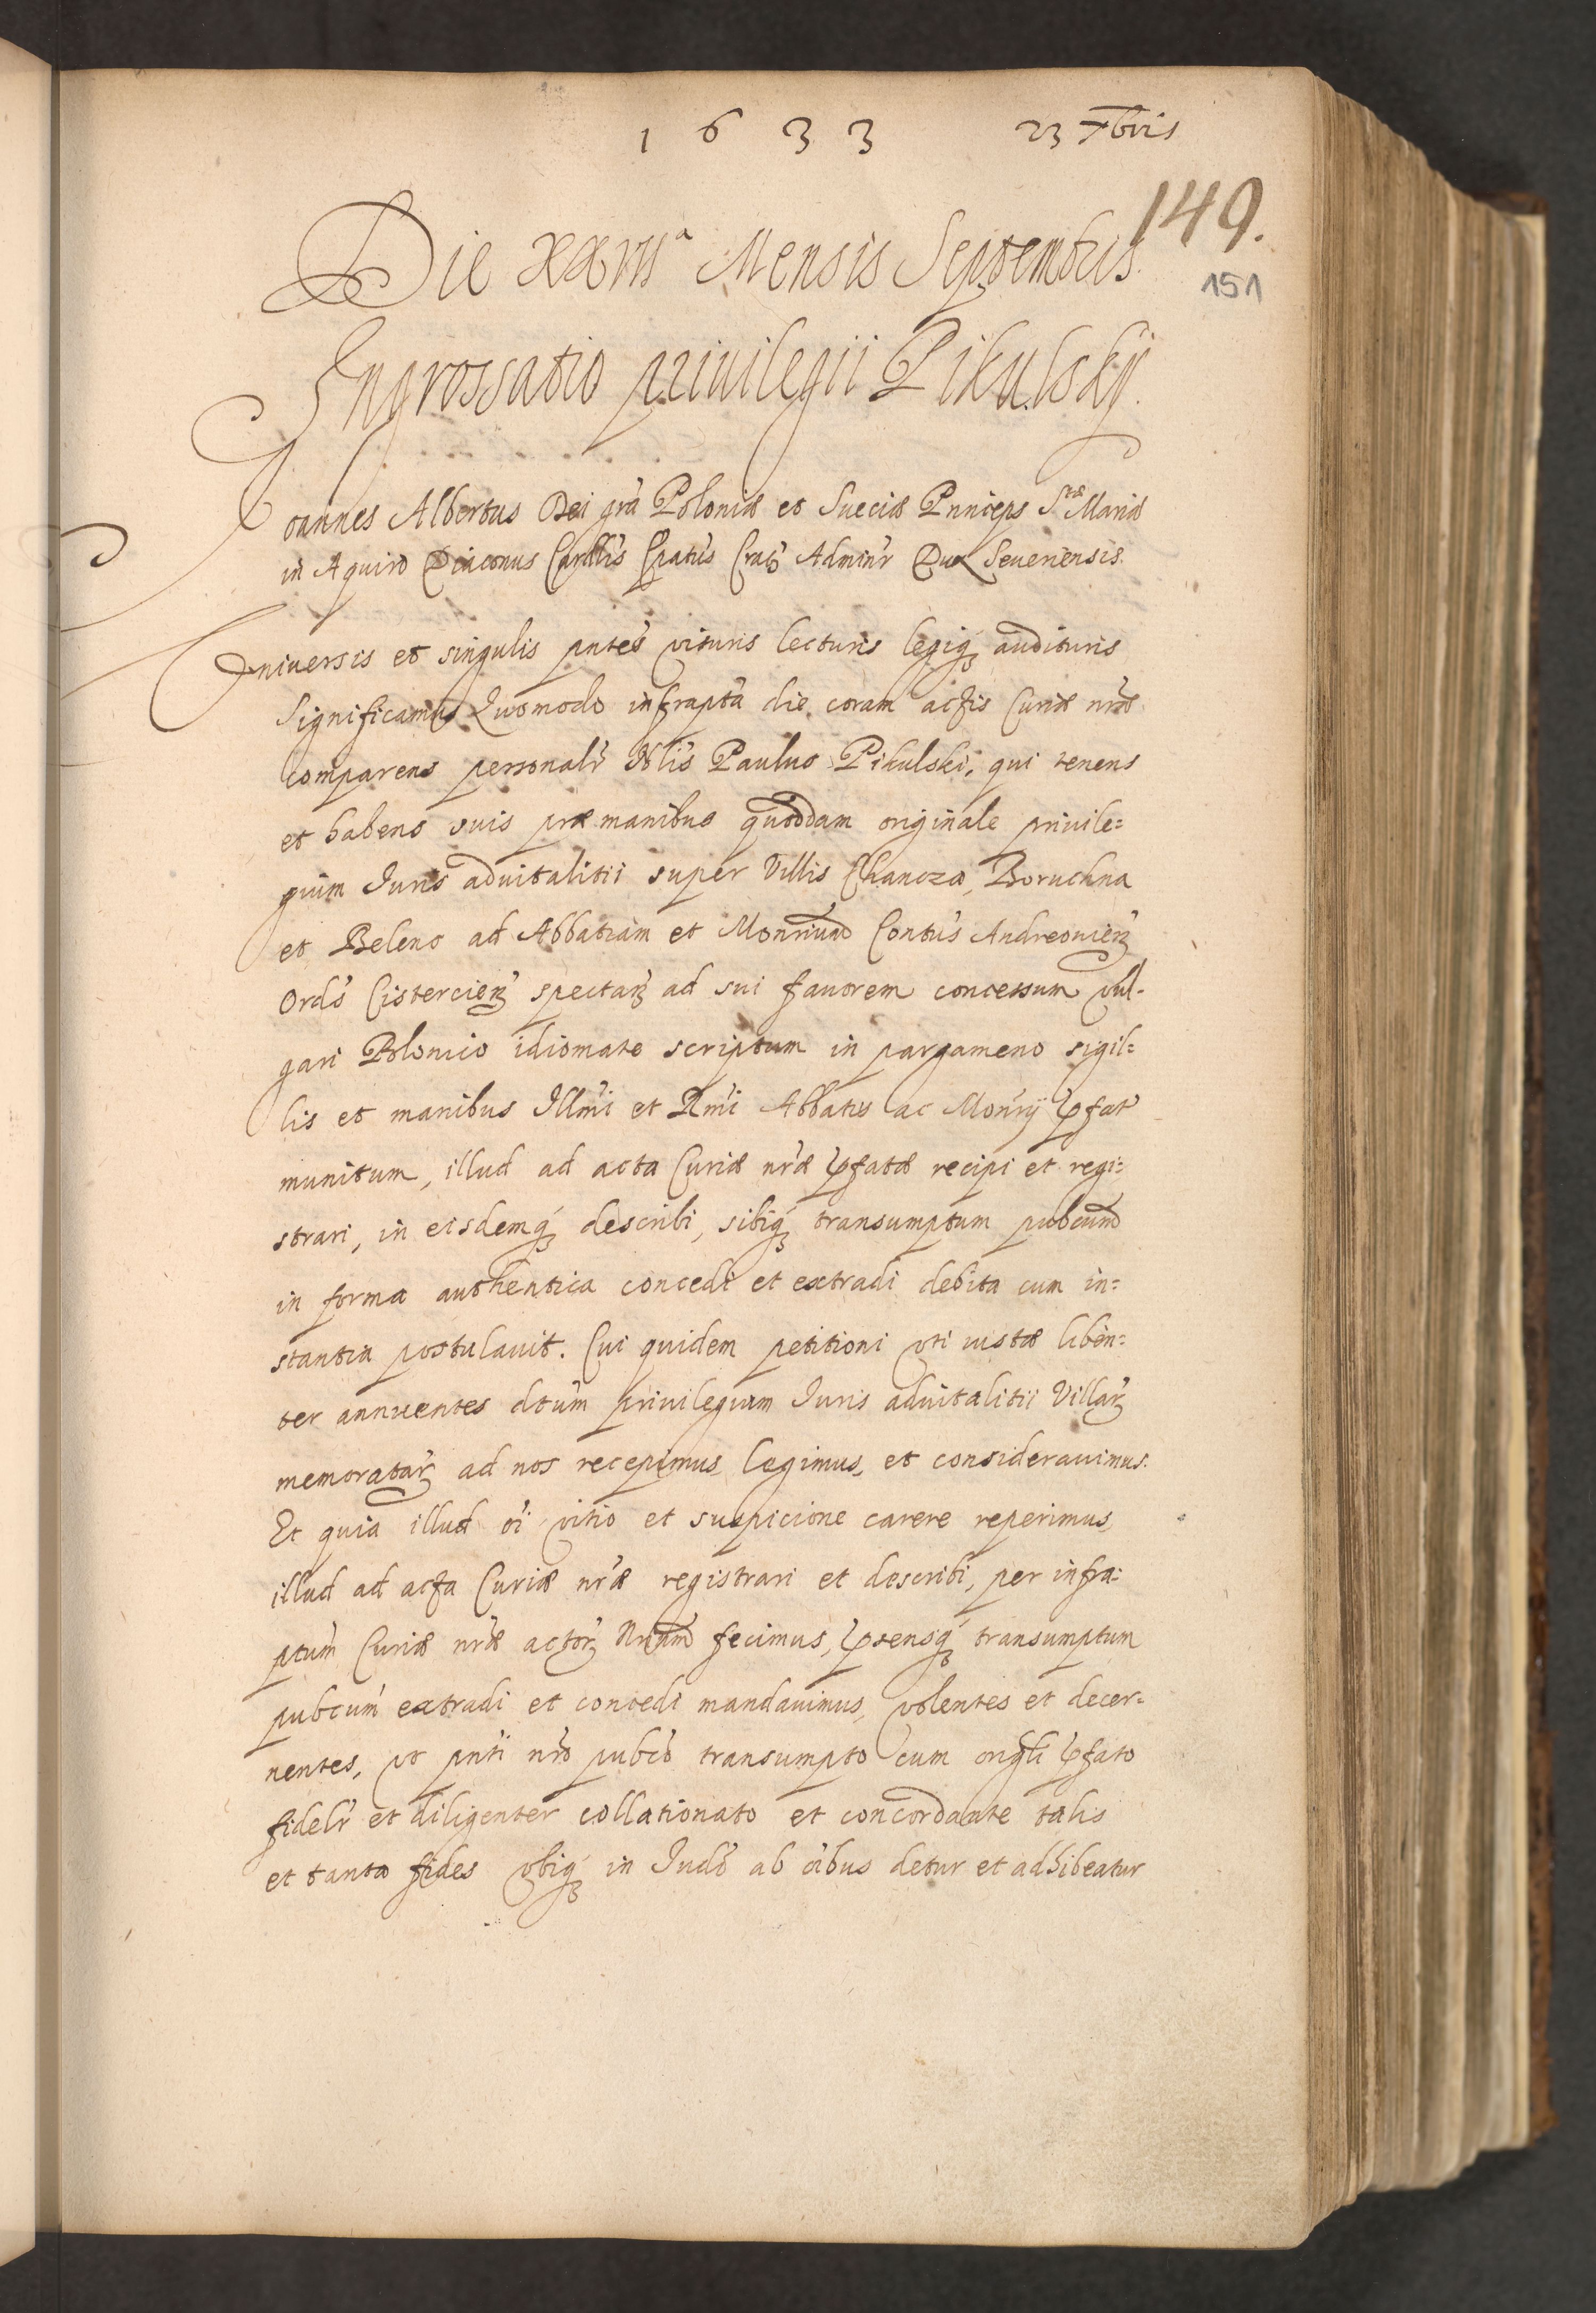 1 6 3 3 23 7bris
149.
Die XXIII<sup>a</sup> Mensis Septembris
151
Ingrossatio priuilegii Pikulskÿ.
Joannes Albertus Dei gra Poloniæ et Sueciæ Princeps S<sup>tæ</sup> Mariæ
in Aquiro Diaconus Cardlis Epatus Crac Adminr Dux Seueriensis.
Vniuersis et singulis pntes visuris lecturis legiq audituris
Significamus Quomodo infrapta die coram actis Curiæ nræ
comparens personalr Nlis Paulus Pikulski, qui tenens
et habens suis præ manibus quoddam originale priuile=
gium Juris aduitalitii super Villis Chancza, Boruchna
et Beleno ad Abbatiam et Monrium Contus Andreouien
Ordis Cistercien spectan ad sui fauorem concessum vul-
gari Polonico idiomate scriptum in pargameno sigil=
lis et manibus Illmi et Rmi Abbatis ac Monrÿ pfat
munitum, illud ad acta Curiæ nræ pfatæ recipi et regi=
strari, in eisdemq describi, sibiq transumptum pubcum
in forma authentica concedi et extradi debita cum in=
stantia postulauit. Cui quidem petitioni vti iustæ liben=
ter annuentes dtum priuilegium Juris aduitalitii Villar
memoratar ad nos recepimus, legimus, et considerauimus.
Et quia illud oi vitio et suspicione carere reperimus
illud ad acta Curiæ nræ registrari et describi, per infra=
ptum Curiæ nræ actor Nrium fecimus, psensq transumptum
pubcum extradi et concedi mandauimus, volentes et decer=
nentes, vt pnti nro pubco transumpto cum origli pfato
fidelr et diligenter collationato et concordante talis
et tanta fides vbiq in Judo ab oibus detur et adhibeatur